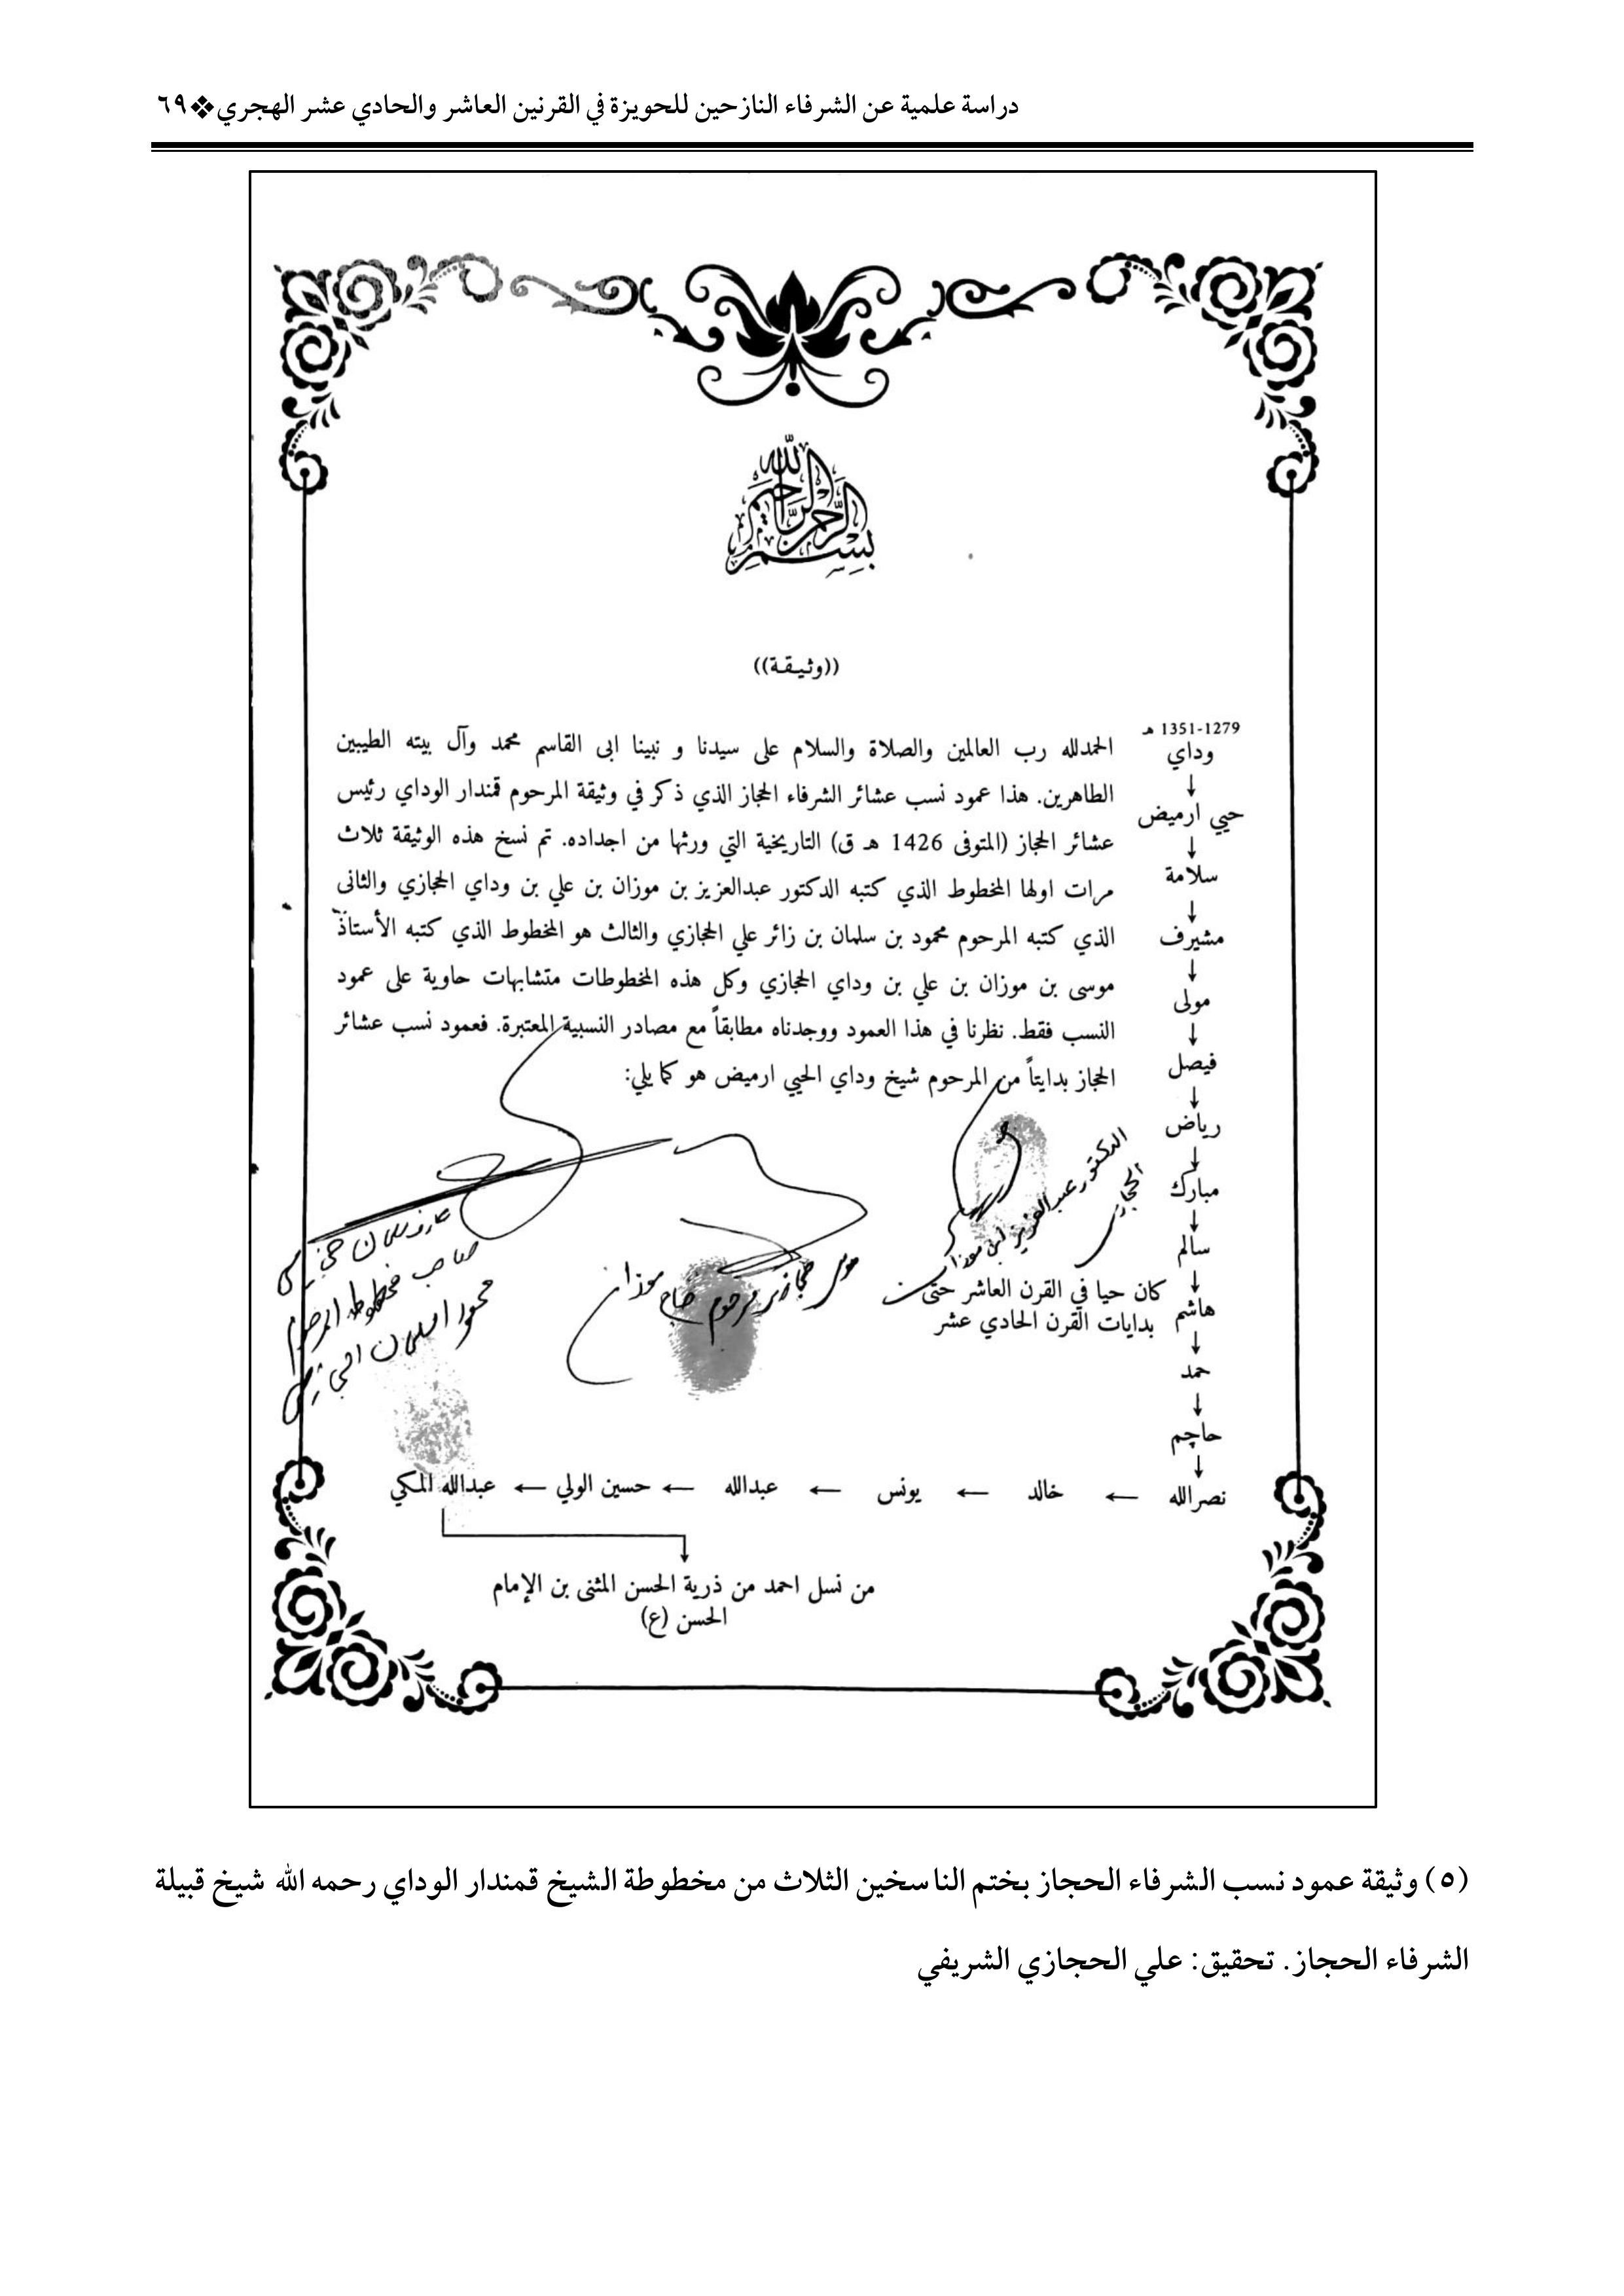 دراسة علمية عن الشرفاء النازحين للحويزة في القرنين العاشر والحادي عشر الهجري ❖ ٦٩
بسم الله الرحمن الرحيم
((وثيقة))
الحمدلله رب العالمين والصلاة والسلام على سيدنا و نبينا ابى القاسم محمد وآل بيته الطيبين
الطاهرين. هذا عمود نسب عشائر الشرفاء الحجاز الذي ذكر في وثيقة المرحوم قمندار الوداي رئيس
عشائر الحجاز (المتوفى 1426 هـ ق) التاريخية التي ورثها من اجداده. تم نسخ هذه الوثيقة ثلاث
مرات اولها المخطوط الذي كتبه الدكتور عبدالعزيز بن موزان بن علي بن وداي الحجازي والثانى
الذي كتبه المرحوم محمود بن سلمان بن زائر علي الحجازي والثالث هو المخطوط الذي كتبه الأستاذ
موسى بن موزان بن علي بن وداي الحجازي وكل هذه المخطوطات متشابهات حاوية على عمود
النسب فقط. نظرنا في هذا العمود ووجدناه مطابقاً مع مصادر النسبية المعتبرة. فعمود نسب عشائر
الحجاز بدايتاً من المرحوم شيخ وداي الحيي ارميض هو كما يلي:
1279-1351 هـ
وداي
↓
حيي ارميض
↓
سلامة
↓
مشيرف
↓
مولى
↓
فيصل
↓
رياض
↓
مبارك
↓
سالم
↓
هاشم
كان حيا في القرن العاشر حتى
بدايات القرن الحادي عشر
↓
حمد
↓
حاچم
↓
نصرالله ← خالد ← يونس ← عبدالله ← حسين الولي ← عبدالله المكي
من نسل احمد من ذرية الحسن المثنى بن الإمام
الحسن (ع)
الدكتور عبدالعزيز ابن موزان
الحجازي
موسى حجازي مرحوم حاج موزان
صاحب مخطوطه المرحوم
(٥) وثيقة عمود نسب الشرفاء الحجاز بختم الناسخين الثلاث من مخطوطة الشيخ قمندار الوداي رحمه الله شيخ قبيلة
الشرفاء الحجاز. تحقيق: علي الحجازي الشريفي